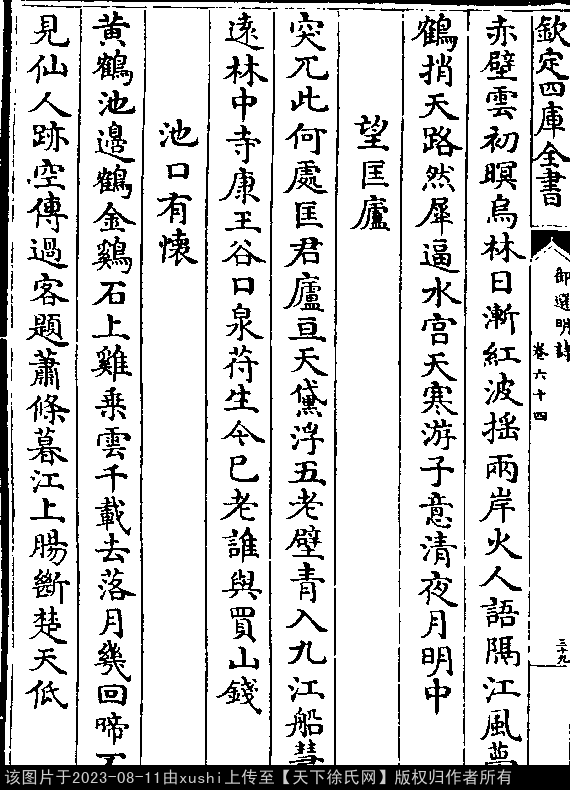 欽定四庫全書
御選明詩
卷六十四
三十九
赤壁雲初暝烏林日漸紅波揺兩岸火人語隔江風夢
鶴捎天路然犀逼水宫天寒游子意清夜月明中
望匡廬
突兀此何處匡君廬亘天黛浮五老壁青入九江船慧
遠林中寺康王谷口泉苻生今已老誰與買山錢
池口有懷
黄鶴池邊鶴金鷄石上雞乗雲千載去落月幾回啼不
見仙人跡空傳過客題蕭條暮江上腸斷楚天低
该图片于2023-08-11由xushi上传至【天下徐氏网】版权归作者所有